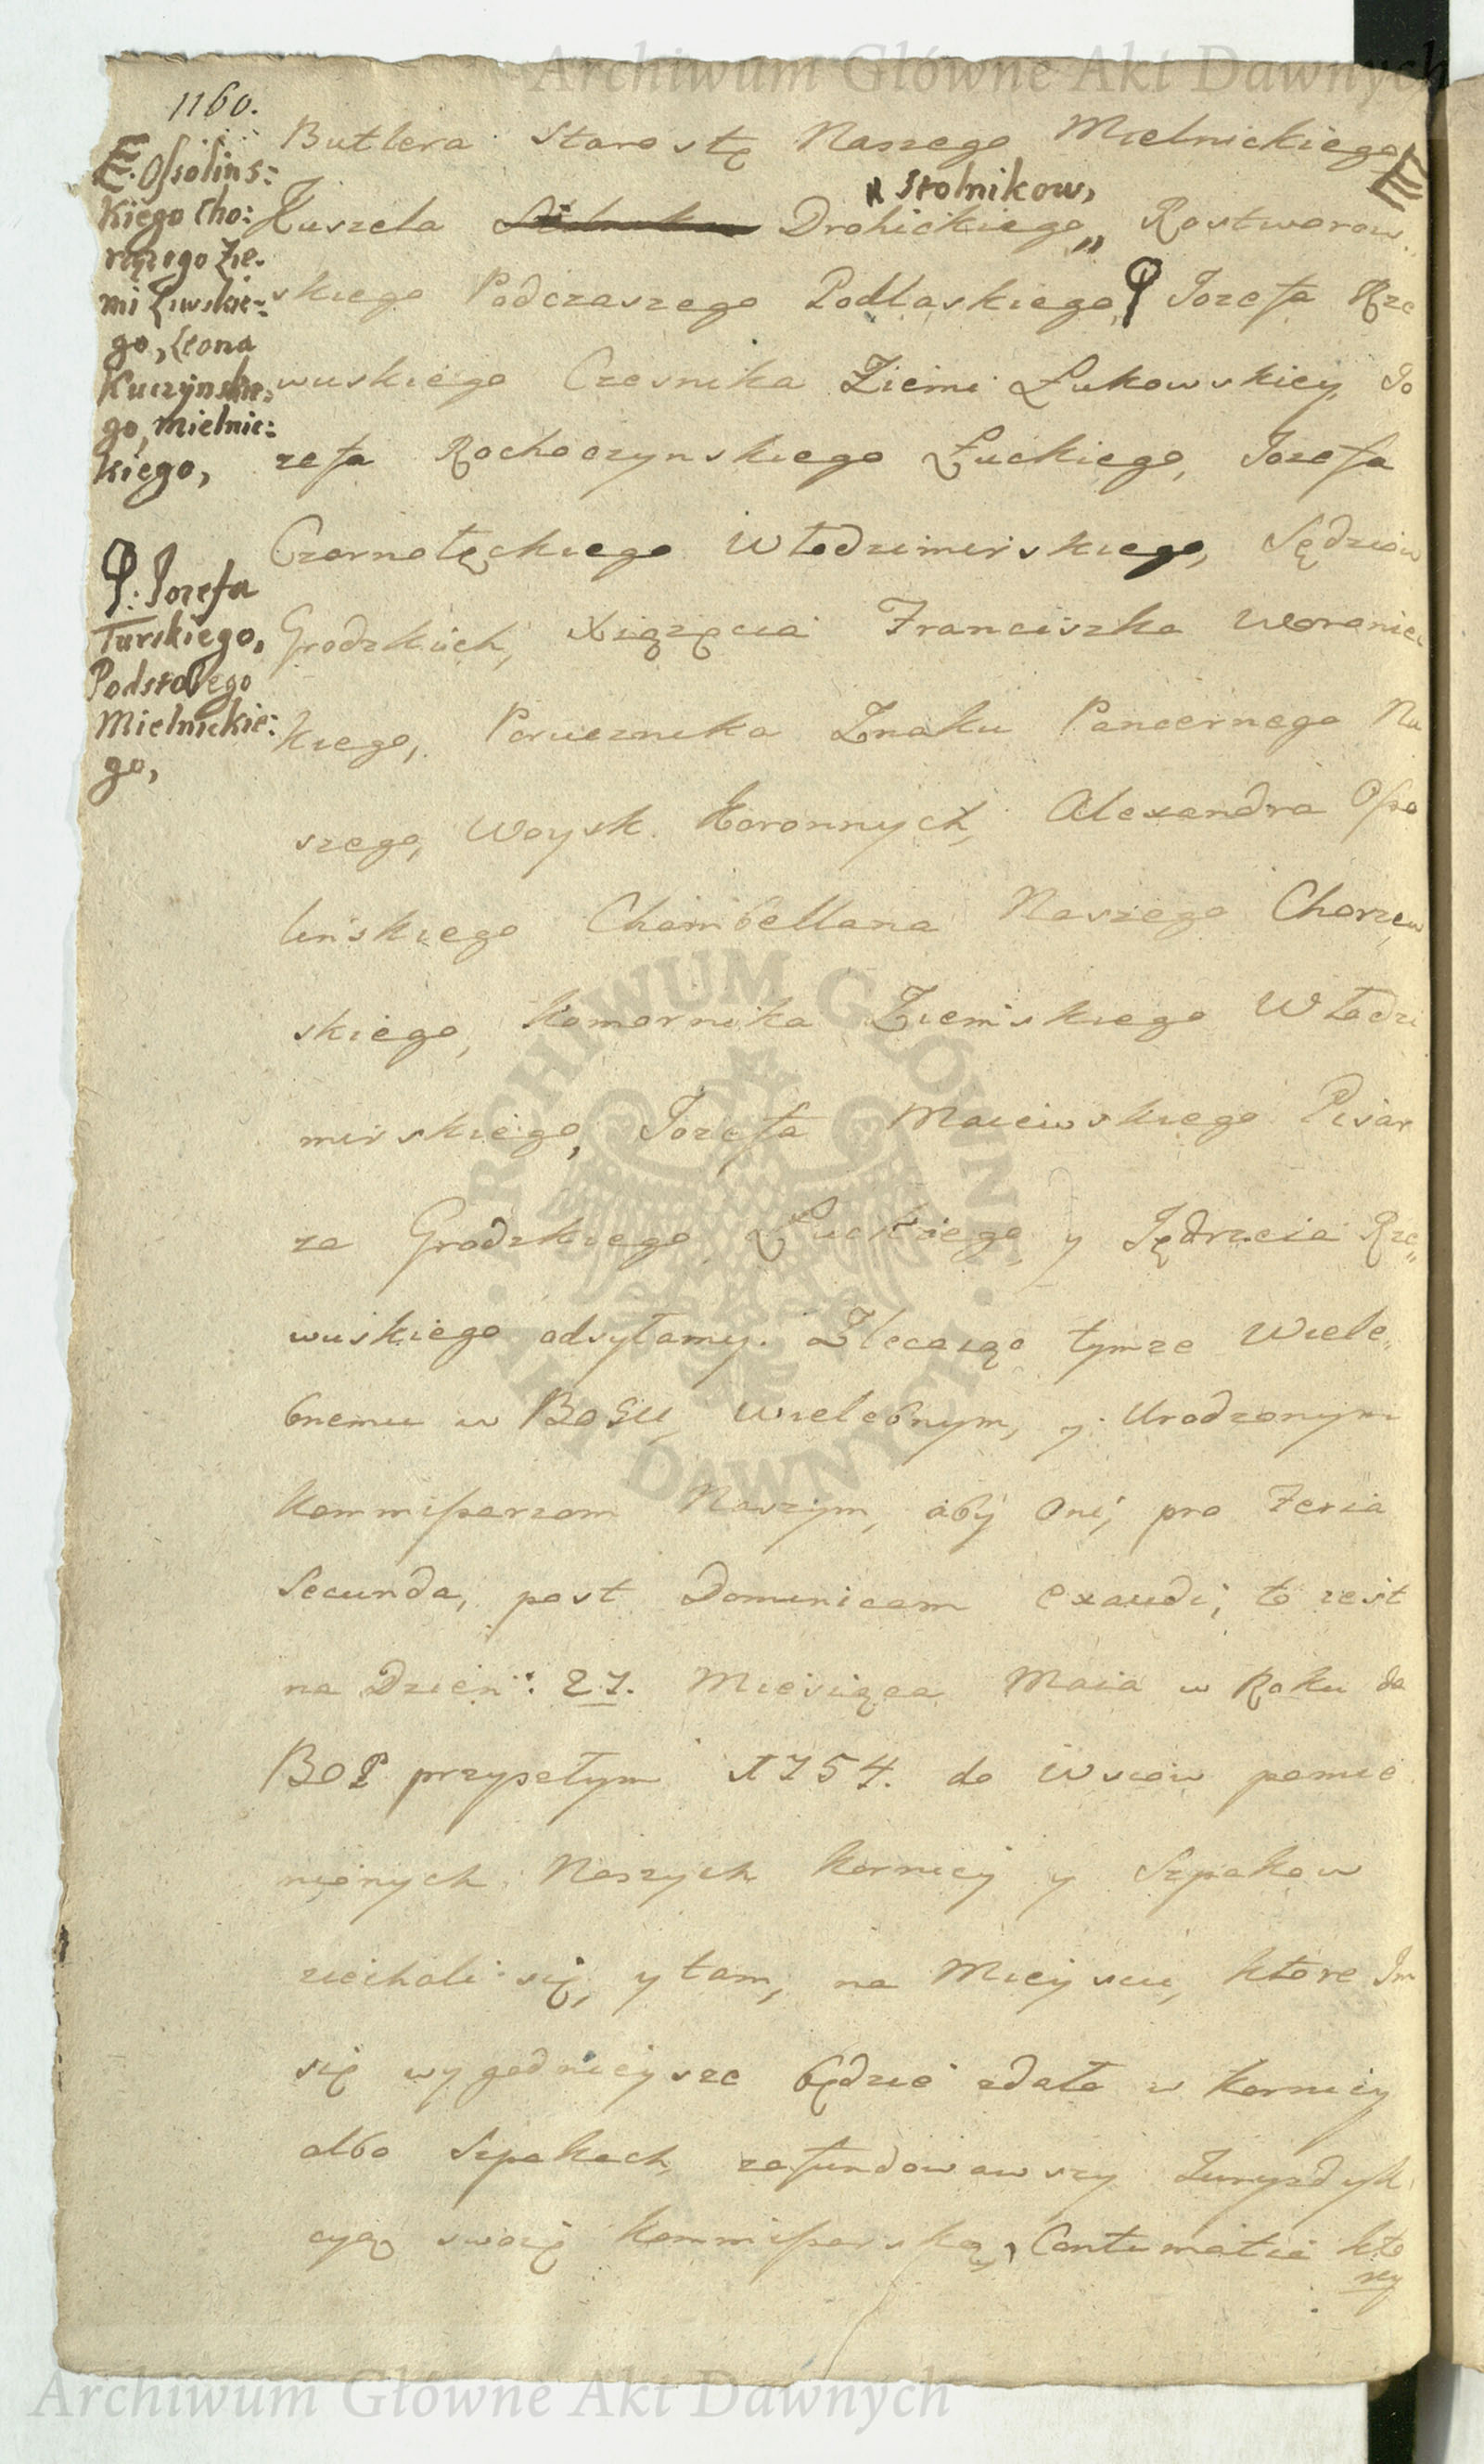 Archiwum Główne Akt Dawnych
1160.
E. Ossolins:
kiego Cho:
rążego Zie.
mi Liwskie:
go, Leona
Kuczynskie:
go, Mielnic:
kiego,
P: Jozefa
Turskiego,
Podstolego
Mielnickie:
go,
Butlera Starostę Naszego Mielnickiego E
Kuszela Drohickiego„ Stolnikow, Rostworow
skiego Podczaszego Podlaskiego, P Jozefa Rze
wuskiego Czesnika Ziemi Łukowskiey, Jo
zefa Rochoczynskiego Łuckiego, Jozefa
Czarnołęckiego Włodzimirskiego, Sędziow
Grodzkich, Xiążęcia Franciszka Woroniec
kiego, Porucznika Znaku Pancernego Na
szego, Woysk Koronnych, Alexandra Osso
linskiego Chambellana Naszego Chorzew
skiego, Komornika Ziemskiego Włodzi
mirskiego, Jozefa Maiewskiego Pisar
za Grodzkiego Łuckiego, y Jędrzeia Rze„
wuskiego odsyłamy. Zlecaiąc tymze Wiele„
bnemu w BOGU, Wielebnym, y Urodzonym
Kommissarzom Naszym, aby Oni, pro Feria
Secunda, post Dominicam Exaudi, to iest
na Dzien: 27. Miesiąca Maia w Roku da
BOP przyszłym 1754. do Wsiow pomie
nionych Naszych Kornicy y Szpakow
ziechali się, y tam, na Mieyscu, ktore Im
się wygodnieysze będzie zdało w Kornicy
albo Szpakach, zafundowawszy Juryzdyk
cyą swoię Kommissarską, Contumatie kto
rey
ARCHIWUM GŁÓWNE · AKT DAWNYCH ·
Archiwum Główne Akt Dawnych